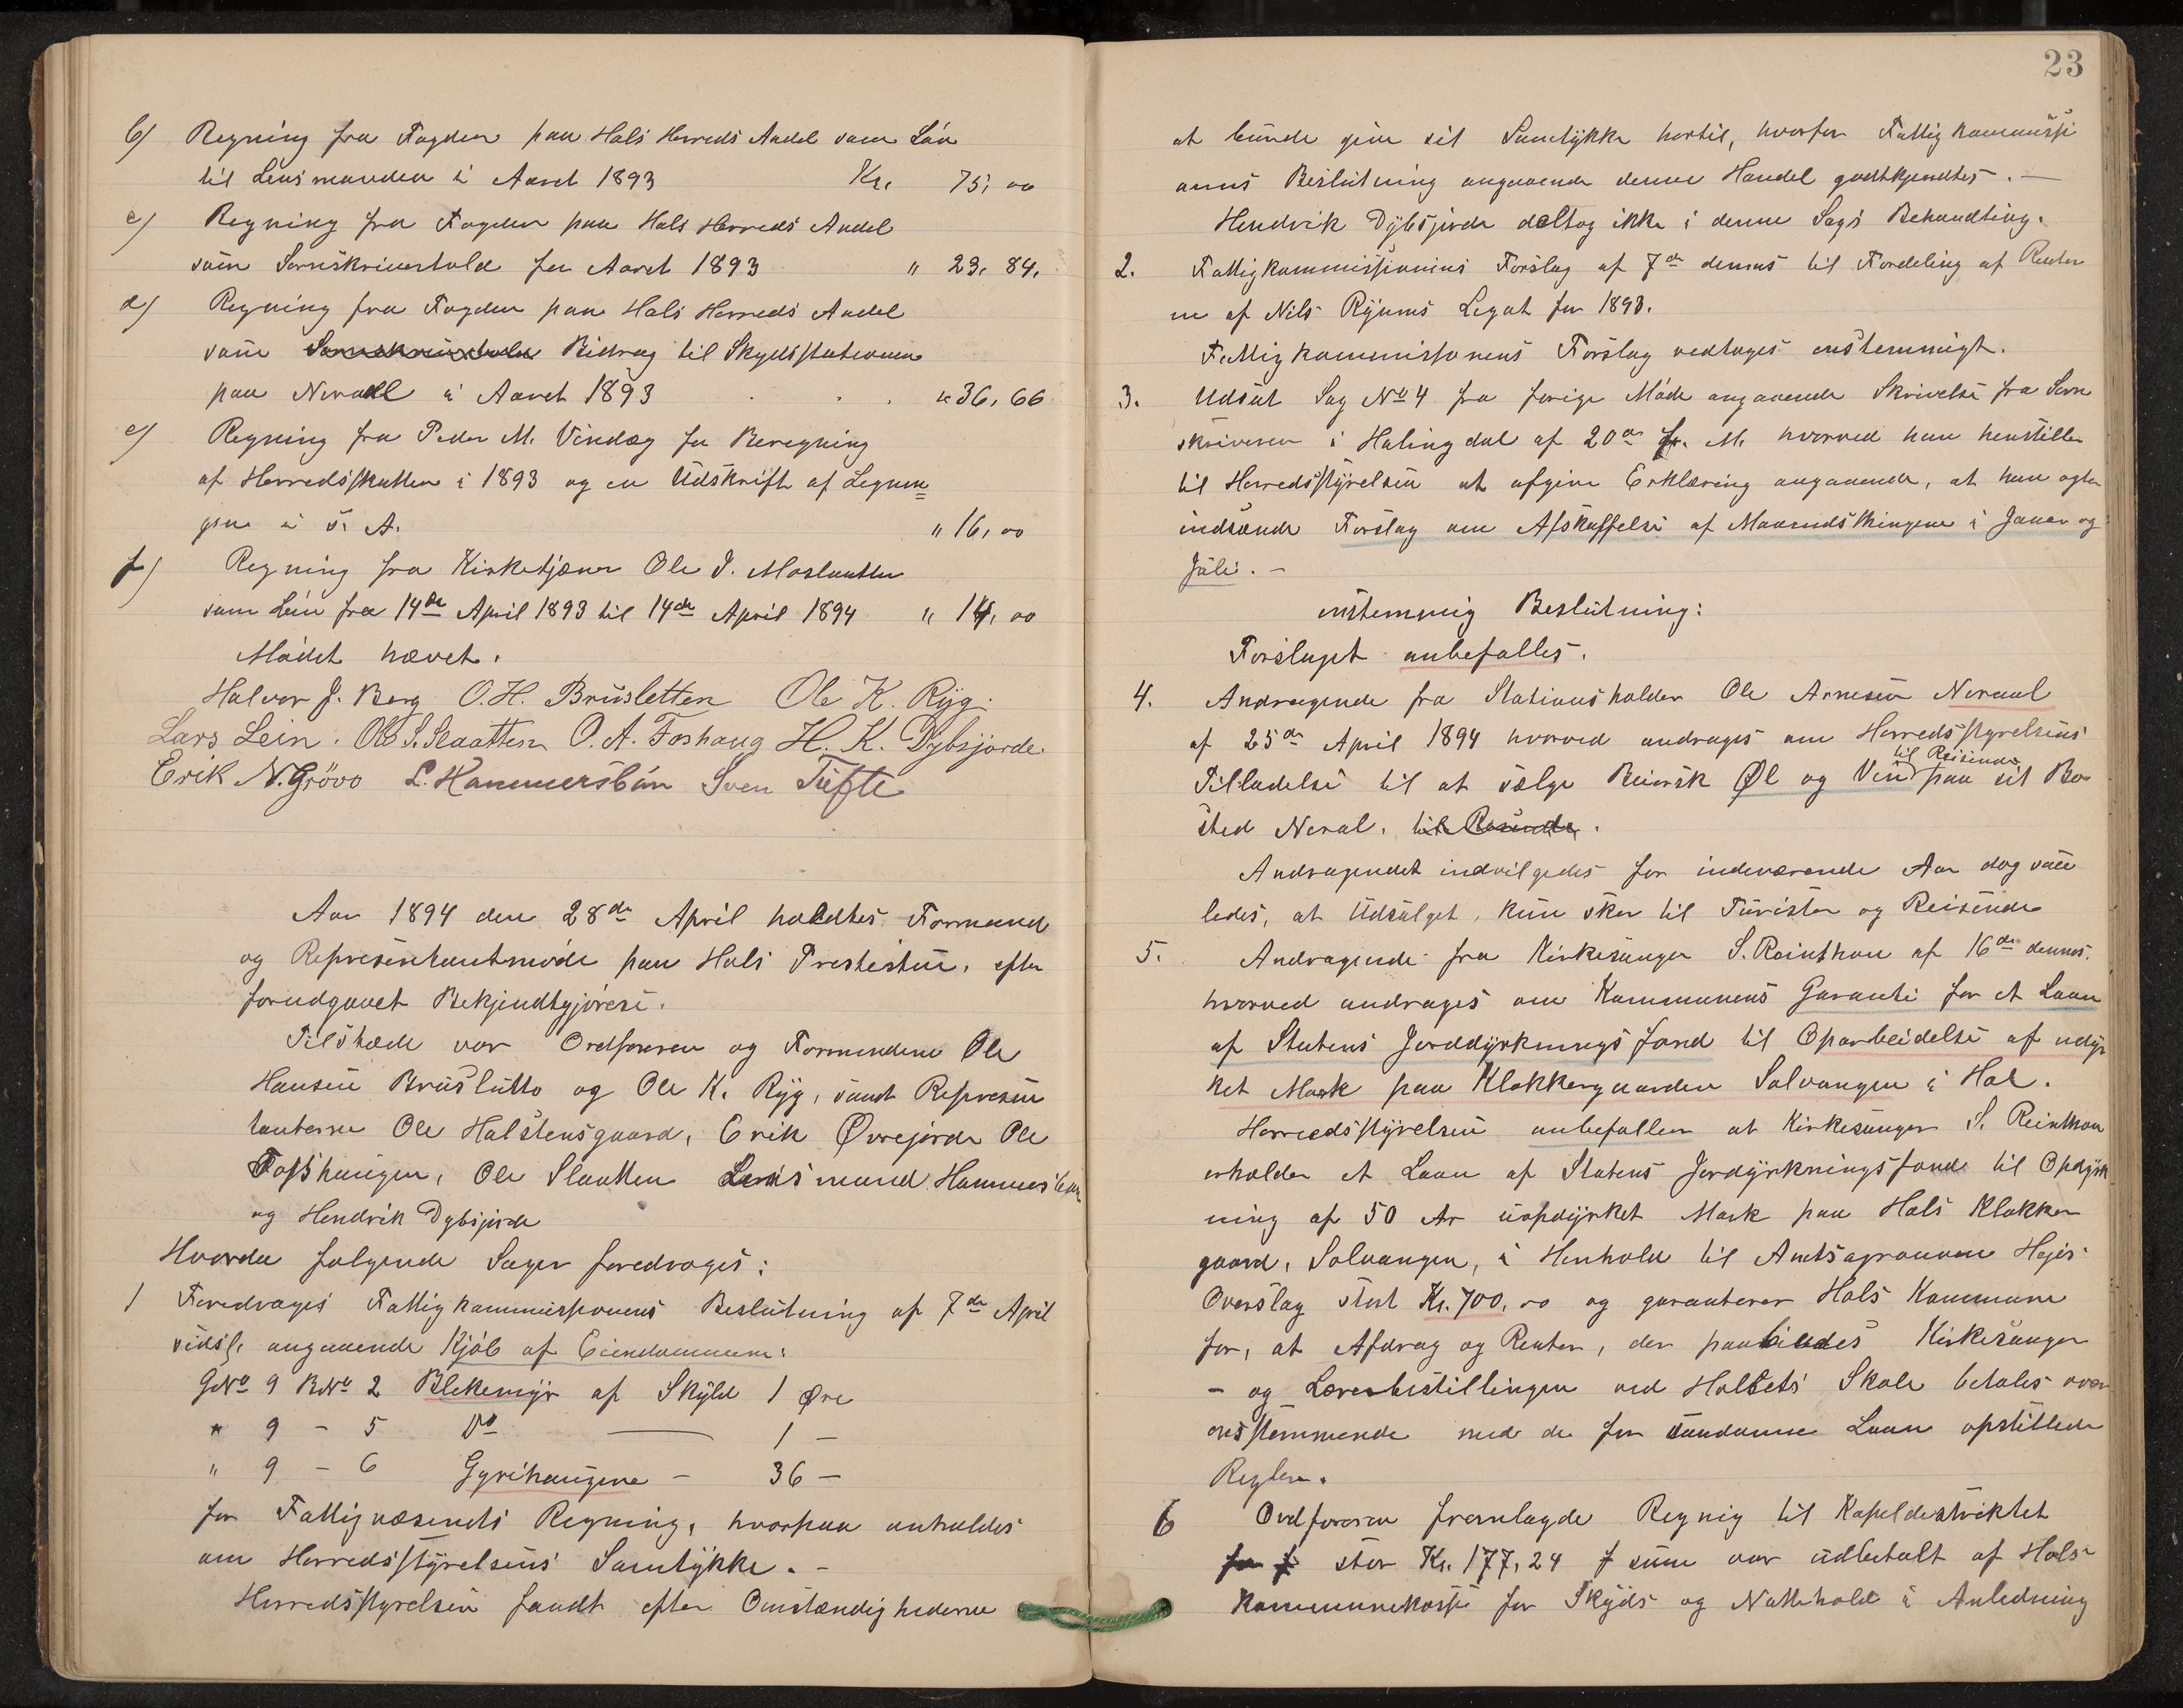 b) Regning fra Fogden paa Hols Herreds Andel som Løn
til Lensmanden i Aaret 1893 Kr. 75, 00
c) Regning fra Fogden paa Hols Herreds Andel
som Sorenskriverhold for Aaret 1893 " 23, 84,
d) Regning fra Fogden paa Hols Herreds Andel
som Sorenskriverhold Bidrag til Skydsstationen
paa Neraal i Aaret 1893 . . . " 36, 66
e) Regning fra Peder M. Vindæg for Beregning
af Herredsskatten i 1893 og en Udskrift af Lignin=
gen i s. A. " 16, 00
f) Regning fra Kirketjæner Ole J. Moslaatten
som Løn fra 14de April 1893 til 14de April 1894 " 14, 00
Mødet hævet.
Halvor J. Berg O. H. Brusletten Ole K. Ryg.
Lars Lein. Ole S. Slaatten O. A. Foshaug H. K. Dybsjorde.
Erik N. Grövo L. Hammersbøn Sven Tufte
Aar 1894 den 28de April holdtes Formand
og Representantmøde paa Hols Prestestue, efter
forudgaaet Bekjendtgjørese.
Tilstæde var Ordføreren og Formændene Ole
Hansen Bruslutto og Ole K. Ryg, samt Represen
tanterne Ole Halstensgaard, Erik Øvrejorde Ole
Fosshaugen, Ole Slaatten Lensmand Hammersbøn
og Hendrik Dybsjorde
Hvorda følgende Sager foredroges:
1 Foredroges Fattigkommissionens Beslutning af 7de April
sidstl. angaaende Kjøb af Eiendommene:
GNo 9 BNo 2 Blekemyr af Skyld 1 Øre
" 9 - 5 Do — 1 —
" 9 - 6 Gyrihaugene - 36 —
for Fattigvæsenets Regning, hvorpaa anholdes
om Herredsstyrelsens Samtykke. -
Herredsstyrelsen fandt efter Omstændighederne
23
at kunde give sit Samtykke hertil, hvorfor Fattigkommissi
onens Beslutning angaaende denne Handel godtkjendtes. —
Hendrik Dybsjorde deltog ikke i denne Sags Behandling.
2. Fattigkommissionens Forslag af 7de dennes til Fordeling af Renter
ne af Nils Ryums Legat for 1893.
Fattigkommissionens Forslag vedtoges enstemmigt.
3. Udsat Sag No 4 fra forige Møde angaaende Skrivelse fra Soren
skriveren i Halingdal af 20de f. M. hvorved han henstiller
til Herredsstyrelsen at afgive Erklæring angaaende, at han agter
indsende Forslag om Afskaffelse af Maanedsthingene i Januar og
Juli. -
enstemmig Beslutning:
Forslaget anbefalles.
4. Andragende fra Stationsholder Ole Arnesen Neraal
af 25de April 1894 hvorved andrages om Herredsstyrelsens
til Reisende
Tilladelse til at sælge Beiersk Øl og Vin paa sit Bo
sted Neral. til Reisende.
Andragendet indvilgedes for indeværende Aar dog saa
ledes, at Udsalget, kun sker til Turister og Reisende
5. Andragende fra Kirkesanger S. Reinthon af 16de dennes.
hvorved andrages om Kommunens Garanti for et Laan
af Statens Jorddyrkningsfond til Oparbeidelse af udyr
ket Mark paa Klokkergaarden Solvangen i Hol.
Herredsstyrelsen anbefaller at Kirkesanger S. Reinthon
erholder et Laan af Statens Jordyrkningsfond til Opdyrk
ning af 50 Ar uopdyrket Mark paa Hols Klokker
gaard, Solvangen, i Henhold til Amtsagronom Hejes
Overslag stort Kr. 700, 00 og garanterer Hols Kommune
for, at Afdrag og Renter, der paabindes Kirkesanger
- og Lærerbestillingen ved Holbets Skole betales over
ensstemmende med de for saadanne Laan opstillede
Regler.
6 Ordføreren fremlagde Regnig til Kapeldistriktet
for f stor Kr. 177, 24 f som var udbetalt af Hols
Kommunekasse for Skyds og Nattehold i Anledning